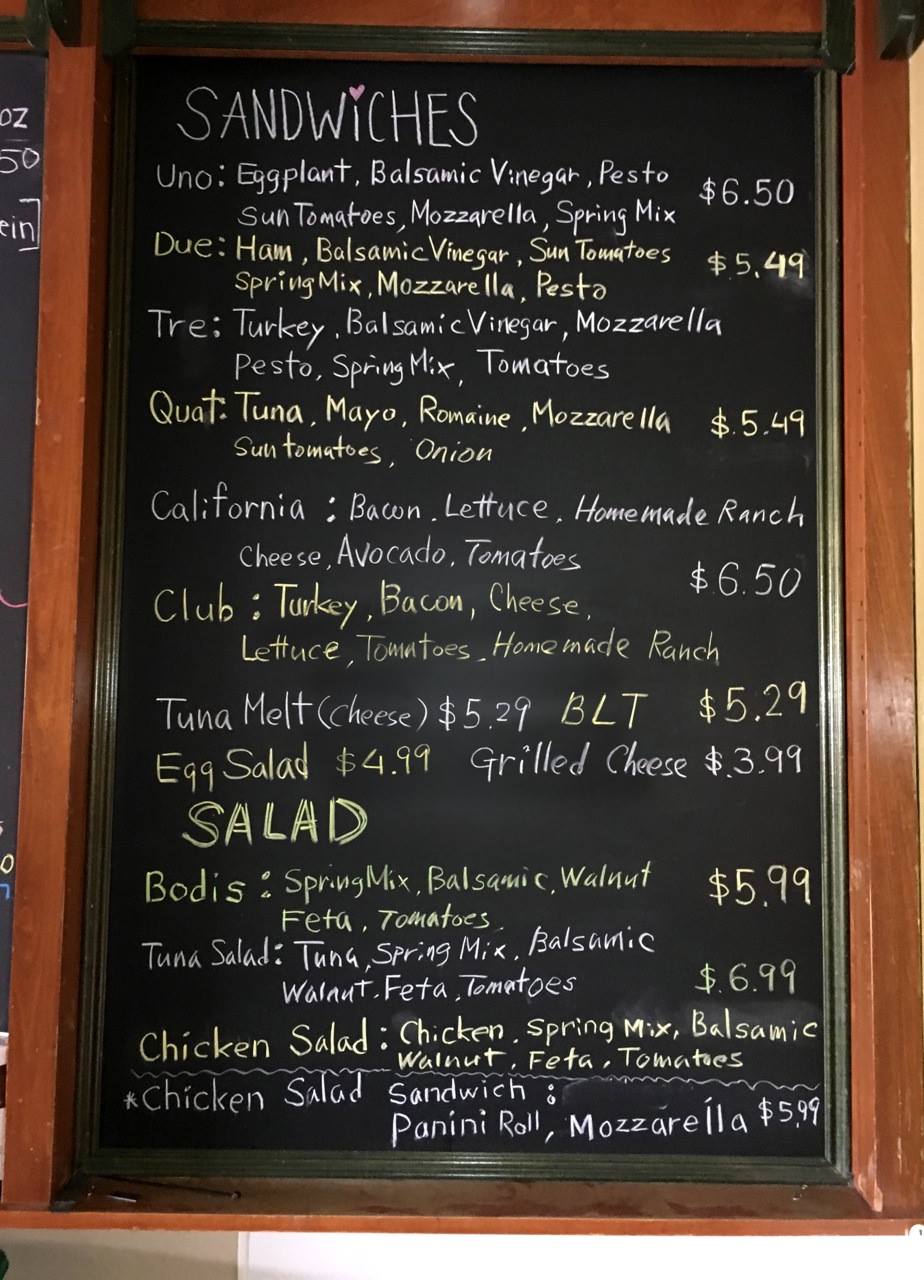 oz
50
ein]
SANDWiCHES
Uno: Eggplant, Balsamic Vinegar, Pesto $6.50
Sun Tomatoes, Mozzarella, Spring Mix
Due: Ham, Balsamic Vinegar, Sun Tomatoes $5.49
Spring Mix, Mozzarella, Pesto
Tre: Turkey, Balsamic Vinegar, Mozzarella
Pesto, Spring Mix, Tomatoes
Quat: Tuna, Mayo, Romaine, Mozzarella $5.49
Sun tomatoes, Onion
California : Bacon, Lettuce, Homemade Ranch
Cheese, Avocado, Tomatoes
$6.50
Club : Turkey, Bacon, Cheese,
Lettuce, Tomatoes, Homemade Ranch
Tuna Melt (Cheese) $5.29 BLT $5.29
Egg Salad $4.99 Grilled Cheese $3.99
SALAD
Bodis : Spring Mix, Balsamic, Walnut $5.99
Feta, Tomatoes
Tuna Salad: Tuna, Spring Mix, Balsamic
Walnut, Feta, Tomatoes $6.99
Chicken Salad : Chicken, Spring Mix, Balsamic
Walnut, Feta, Tomatoes
*Chicken Salad Sandwich :
Panini Roll, Mozzarella $5.99